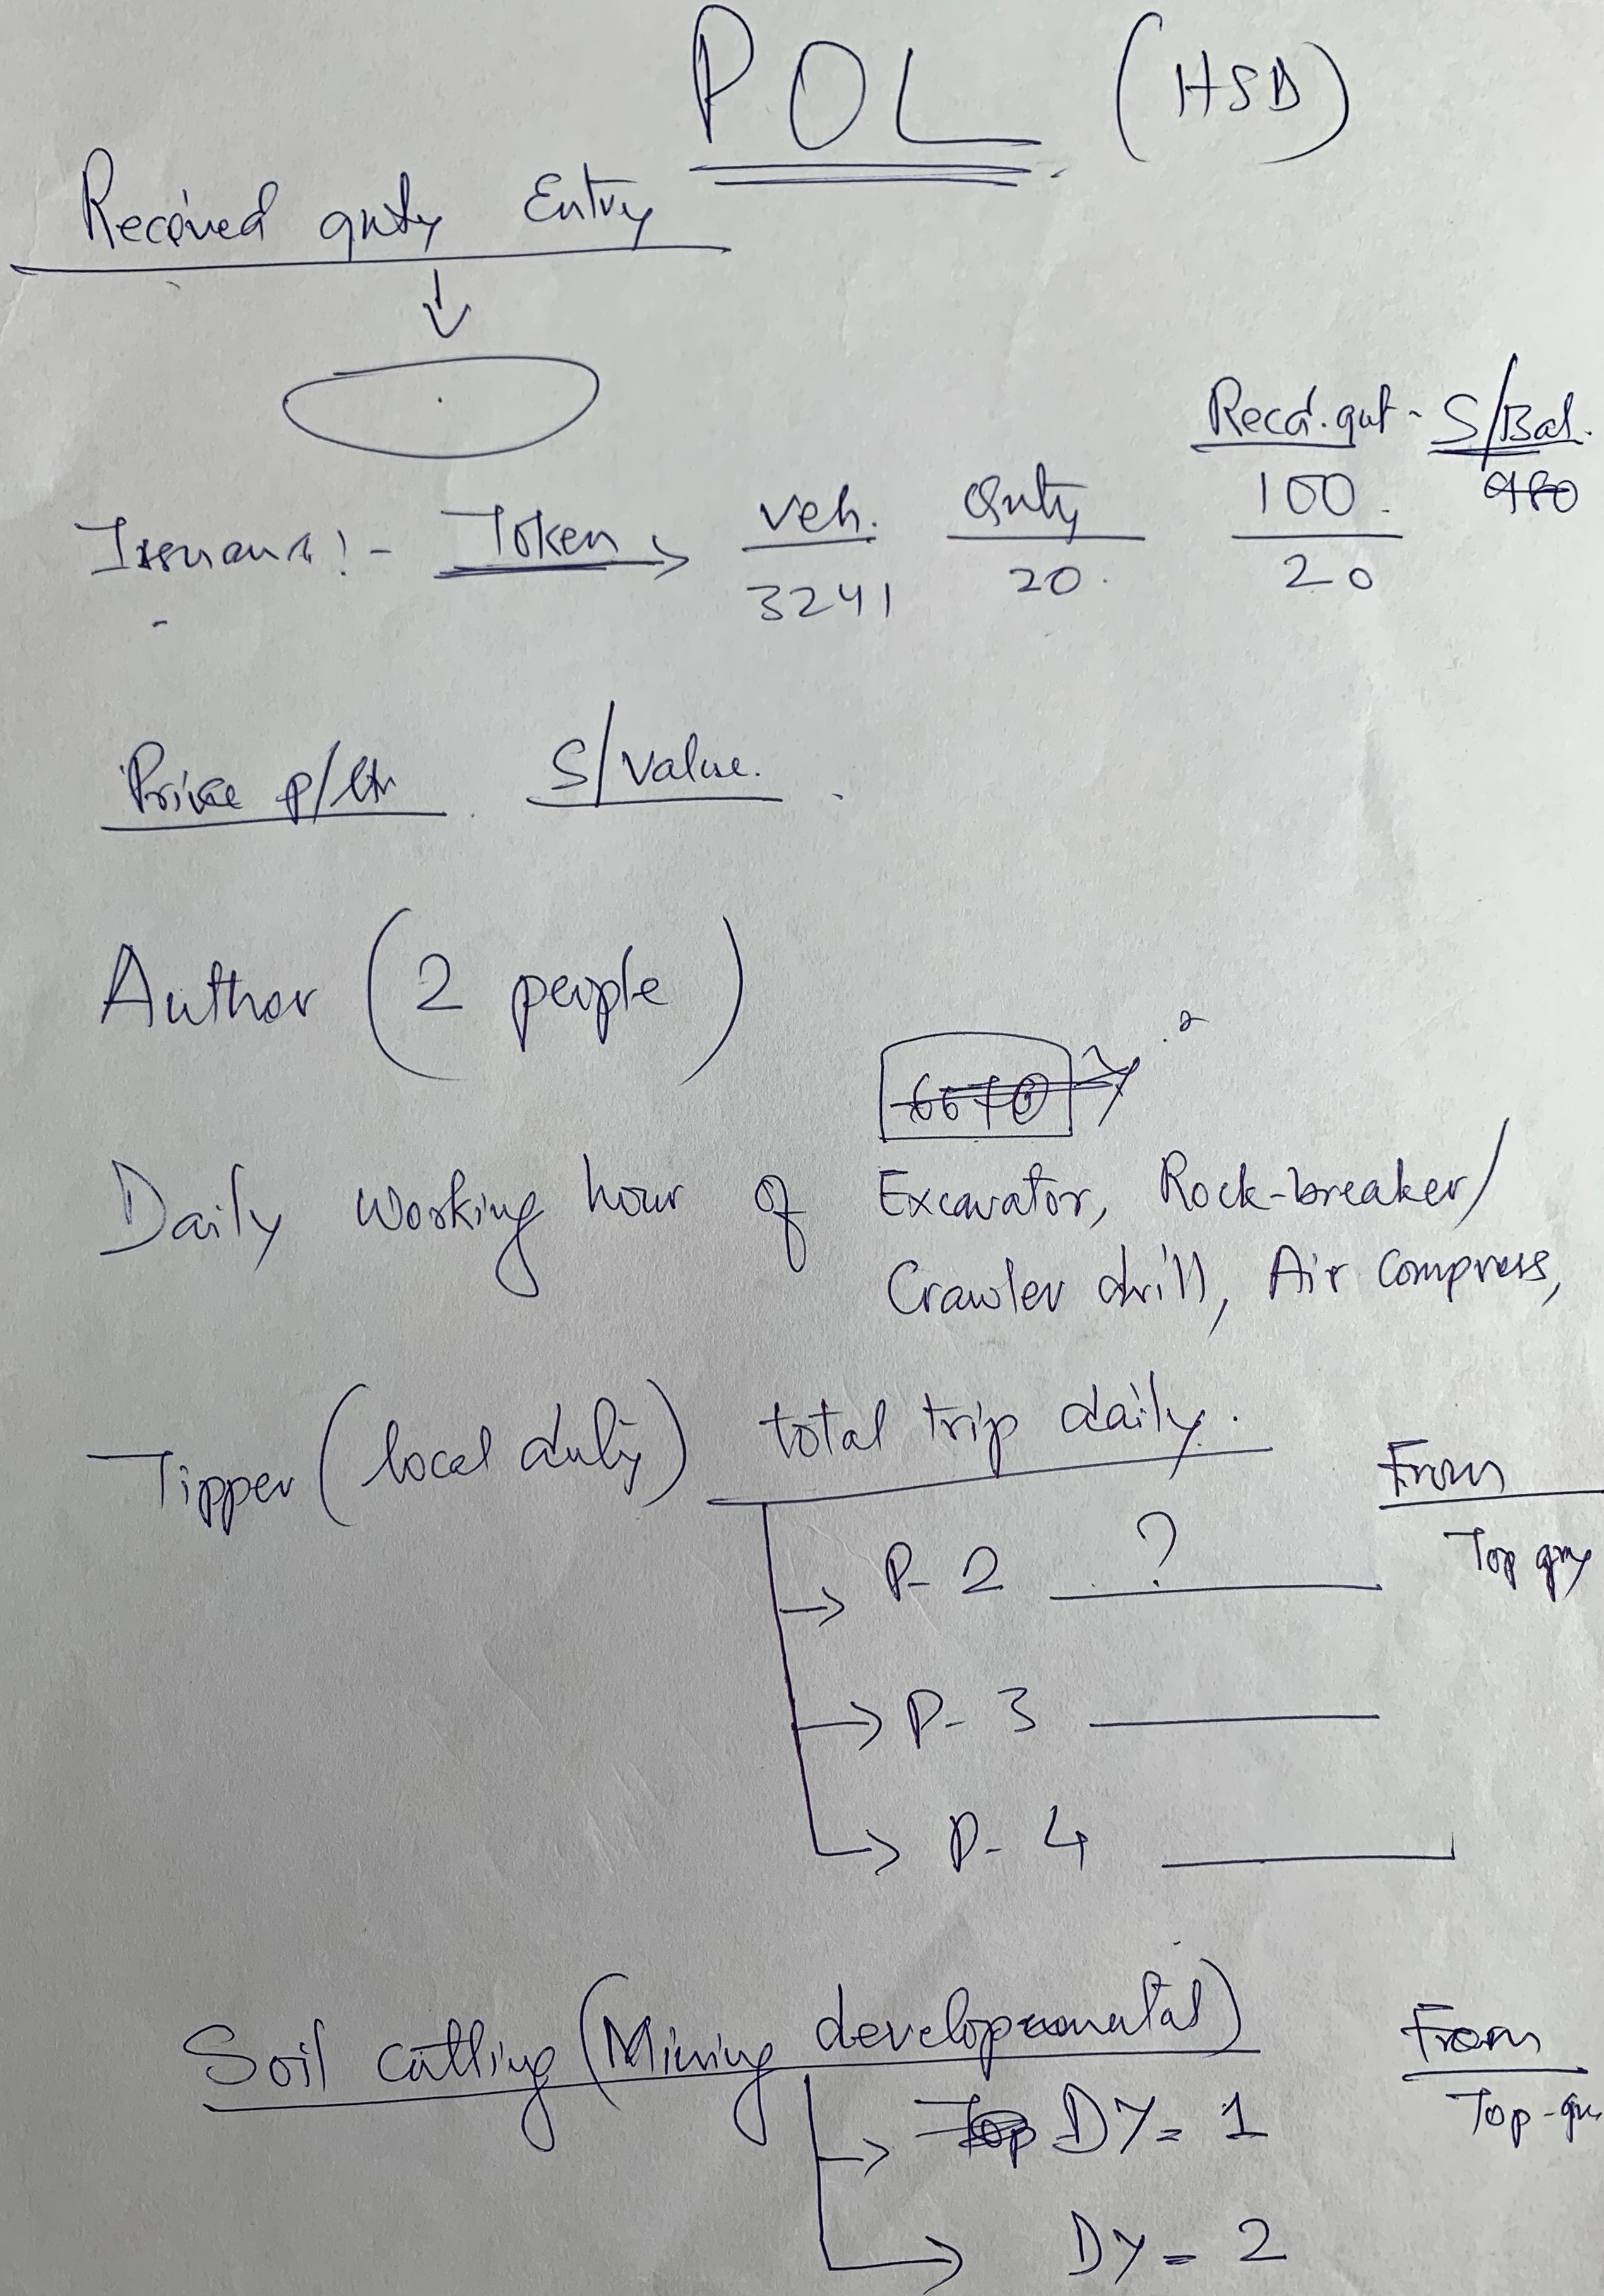 POL (HSD)
Received qnty Entry
Recd. qnt - S/Bal.
Token → veh. Qnty 100.
3241 20. 20
Price p/ltr S/value.
Author (2 people)
Daily working hour of Excavator, Rock-breaker/
Crawler drill, Air compress,
Tipper (local duty) total trip daily.
From
P-2 ?
Top
P-3
P-4
Soil cutting (Mining developmental)
From
DY = 1
Top
DY = 2